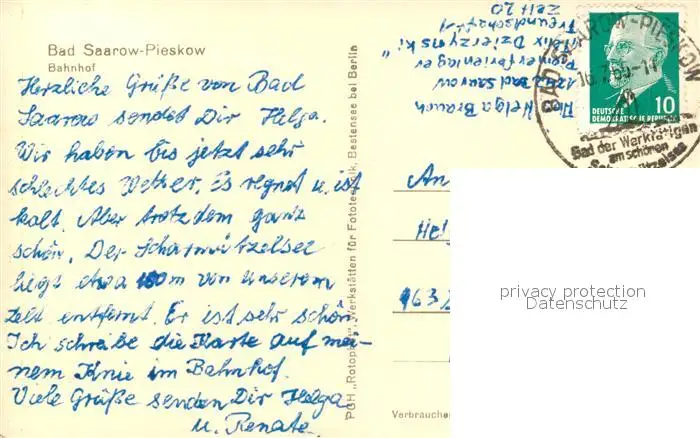 Bad Saarow-Pieskow
Bahnhof
Herzliche Grüße von Bad
Saarow sendet Dir Helga.
Wir haben bis jetzt sehr
schlechtes Wetter. Es regnet u. ist
kalt. Aber trotzdem ganz
schön. Der Scharmützelsee
liegt etwa 100m von unserem
Zelt entfernt. Er ist sehr schön.
Ich schreibe die Karte auf mei-
nem Knie im Bahnhof.
Viele Grüße senden Dir Helga
u. Renate.
PGH „Rotophot", Werkstätten für Fototechnik, Bestensee bei Berlin
Helga Brauch
1242 Bad Saarow
Pionierferienlager
"Felix Dzierzynski"
Freundschaft 1
Zelt 20
BAD SAAROW-PIESKOW
Bad der Werktätigen
am schönen
DEUTSCHE
DEMOKRATISCHE REPUBLIK
10
An
Hel
1632
Verbraucher
privacy protection
Datenschutz